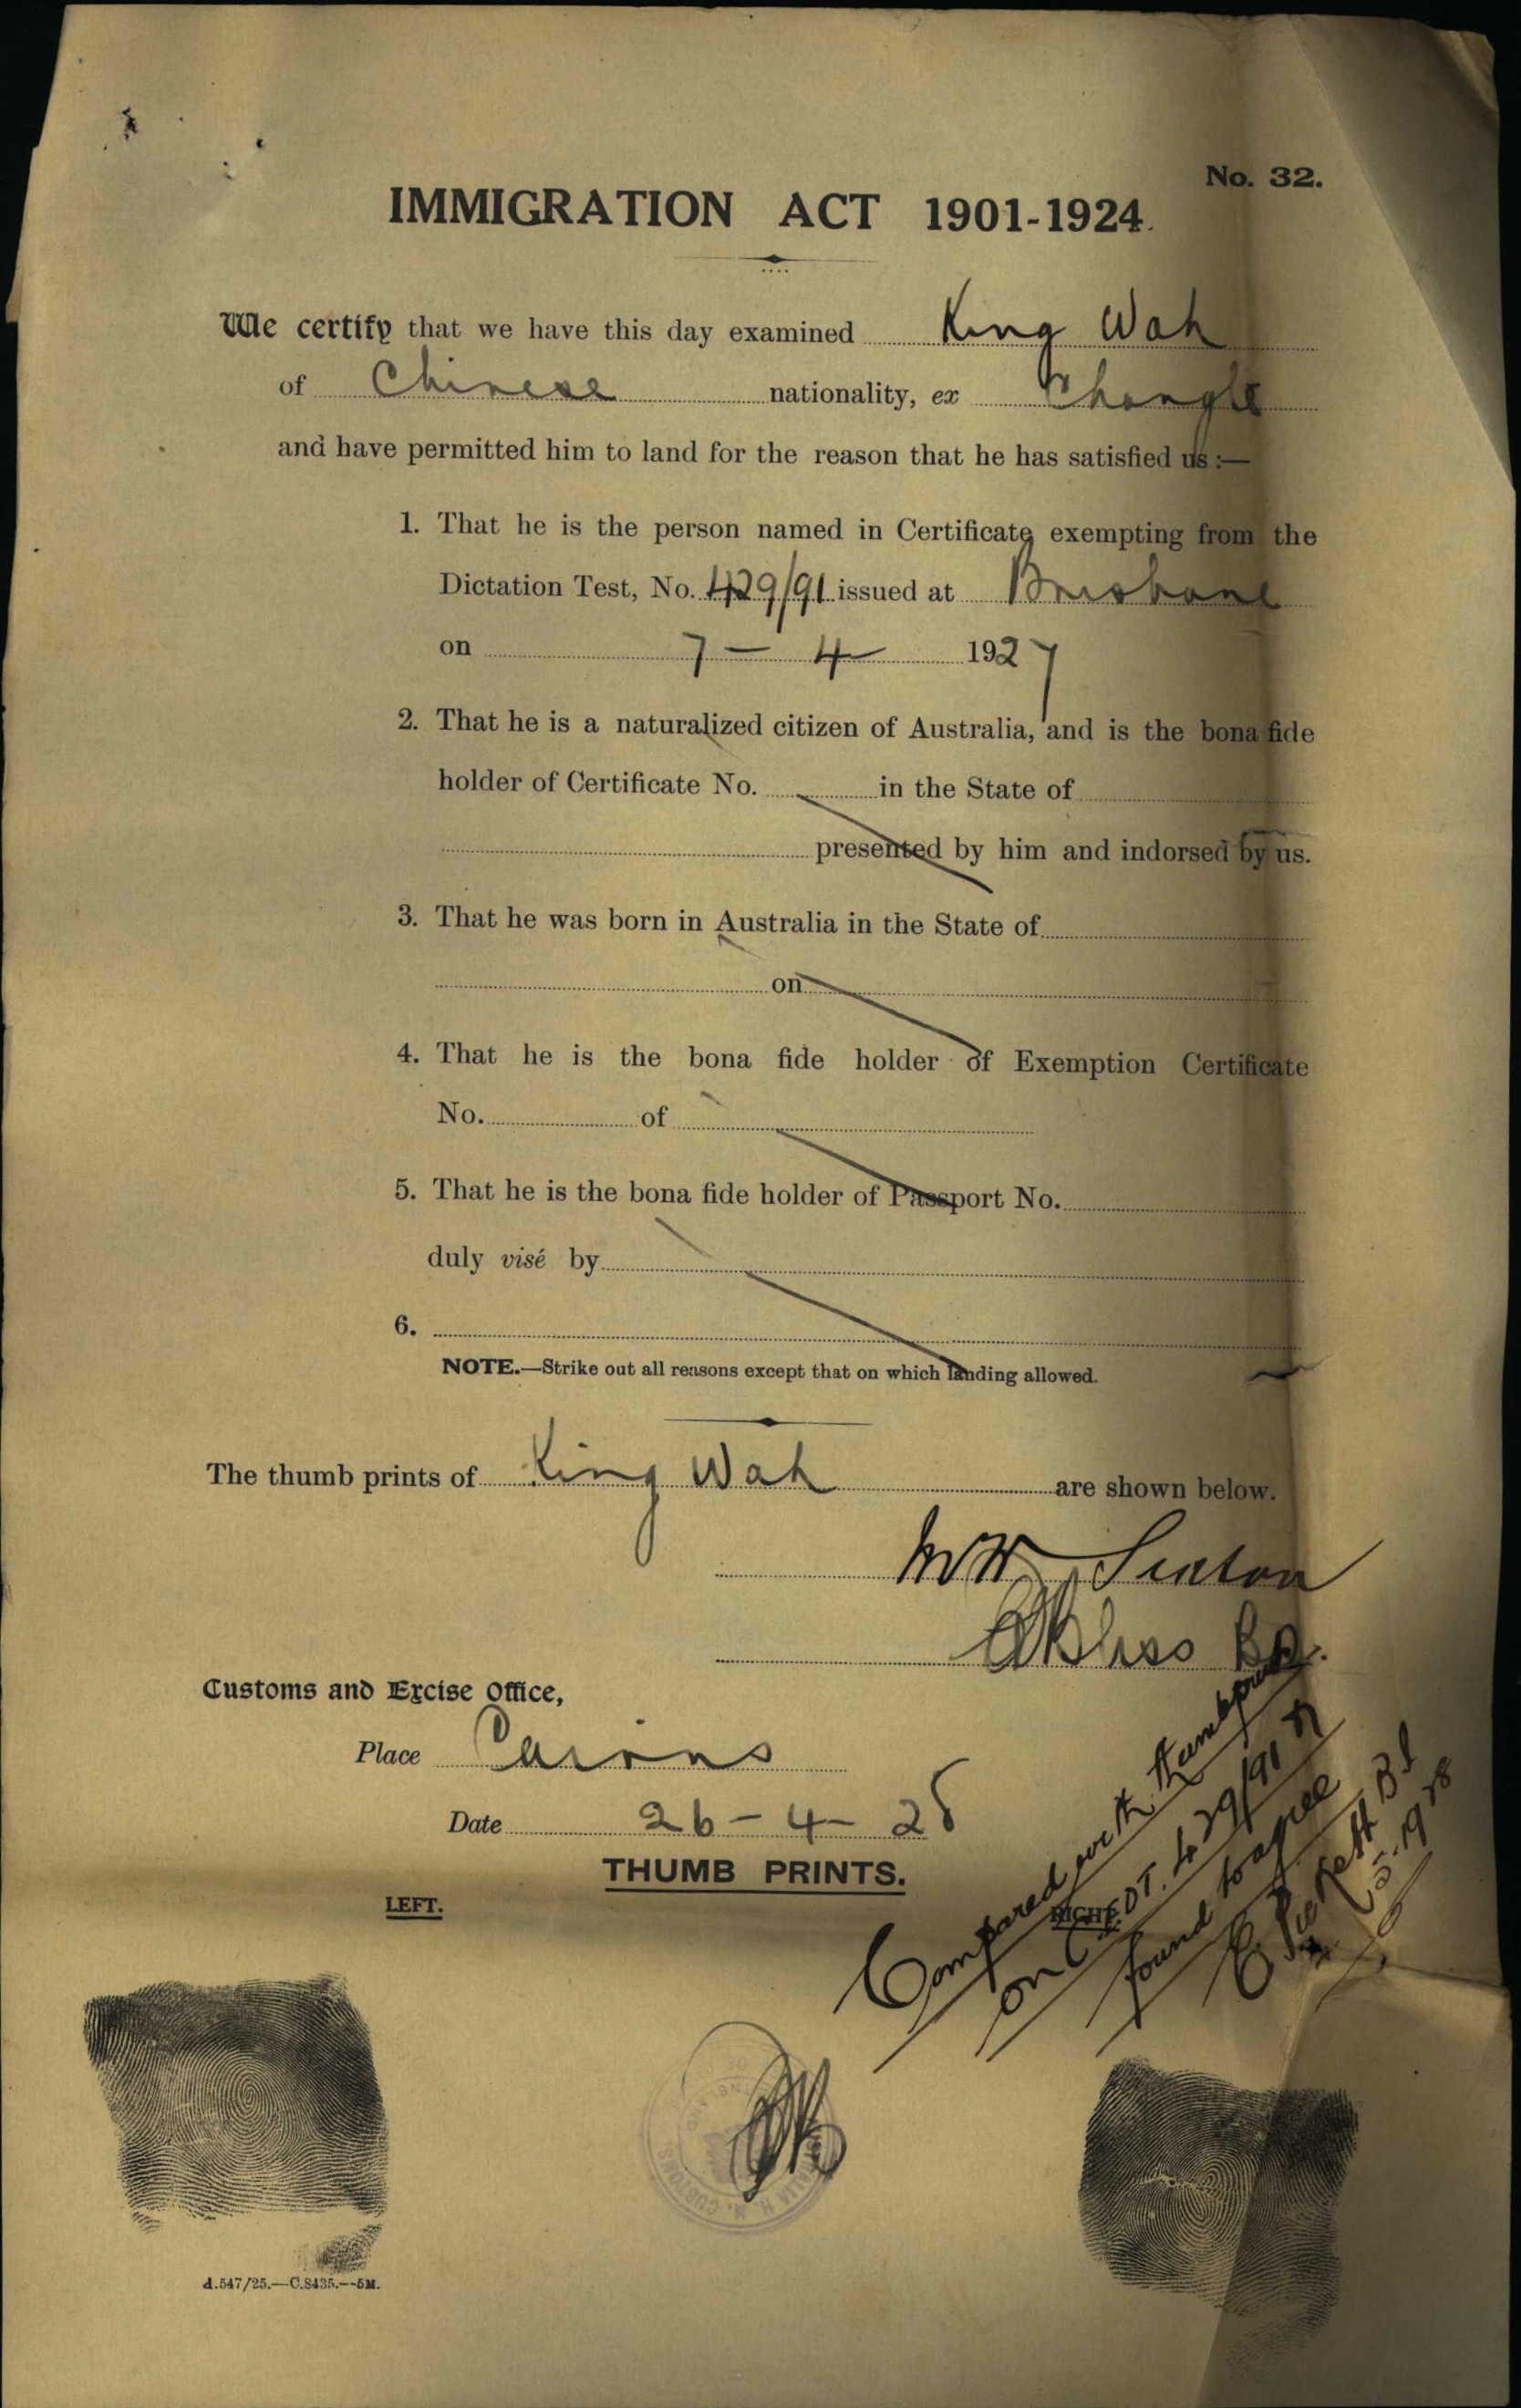 No. 32.
IMMIGRATION ACT 1901-1924.
We certify that we have this day examined King Wah
of Chinese nationality, ex Changte
and have permitted him to land for the reason that he has satisfied us :—
1. That he is the person named in Certificate exempting from the
Dictation Test, No. 429/91 issued at Brisbane
on 7 - 4 1927
2. That he is a naturalized citizen of Australia, and is the bona fide
holder of Certificate No. in the State of
presented by him and indorsed by us.
3. That he was born in Australia in the State of
on
4. That he is the bona fide holder of Exemption Certificate
No. of
5. That he is the bona fide holder of Passport No.
duly visé by
6.
NOTE.—Strike out all reasons except that on which landing allowed.
The thumb prints of King Wah are shown below.
Customs and Excise Office,
Place Cairns
Date 26-4-28
THUMB PRINTS.
LEFT.
RIGHT.
Compared with thumbprints
on C.E.D.T. 429/91
found to agree
5.1928
CUSTOMS
d.547/25.—C.8435.—5M.